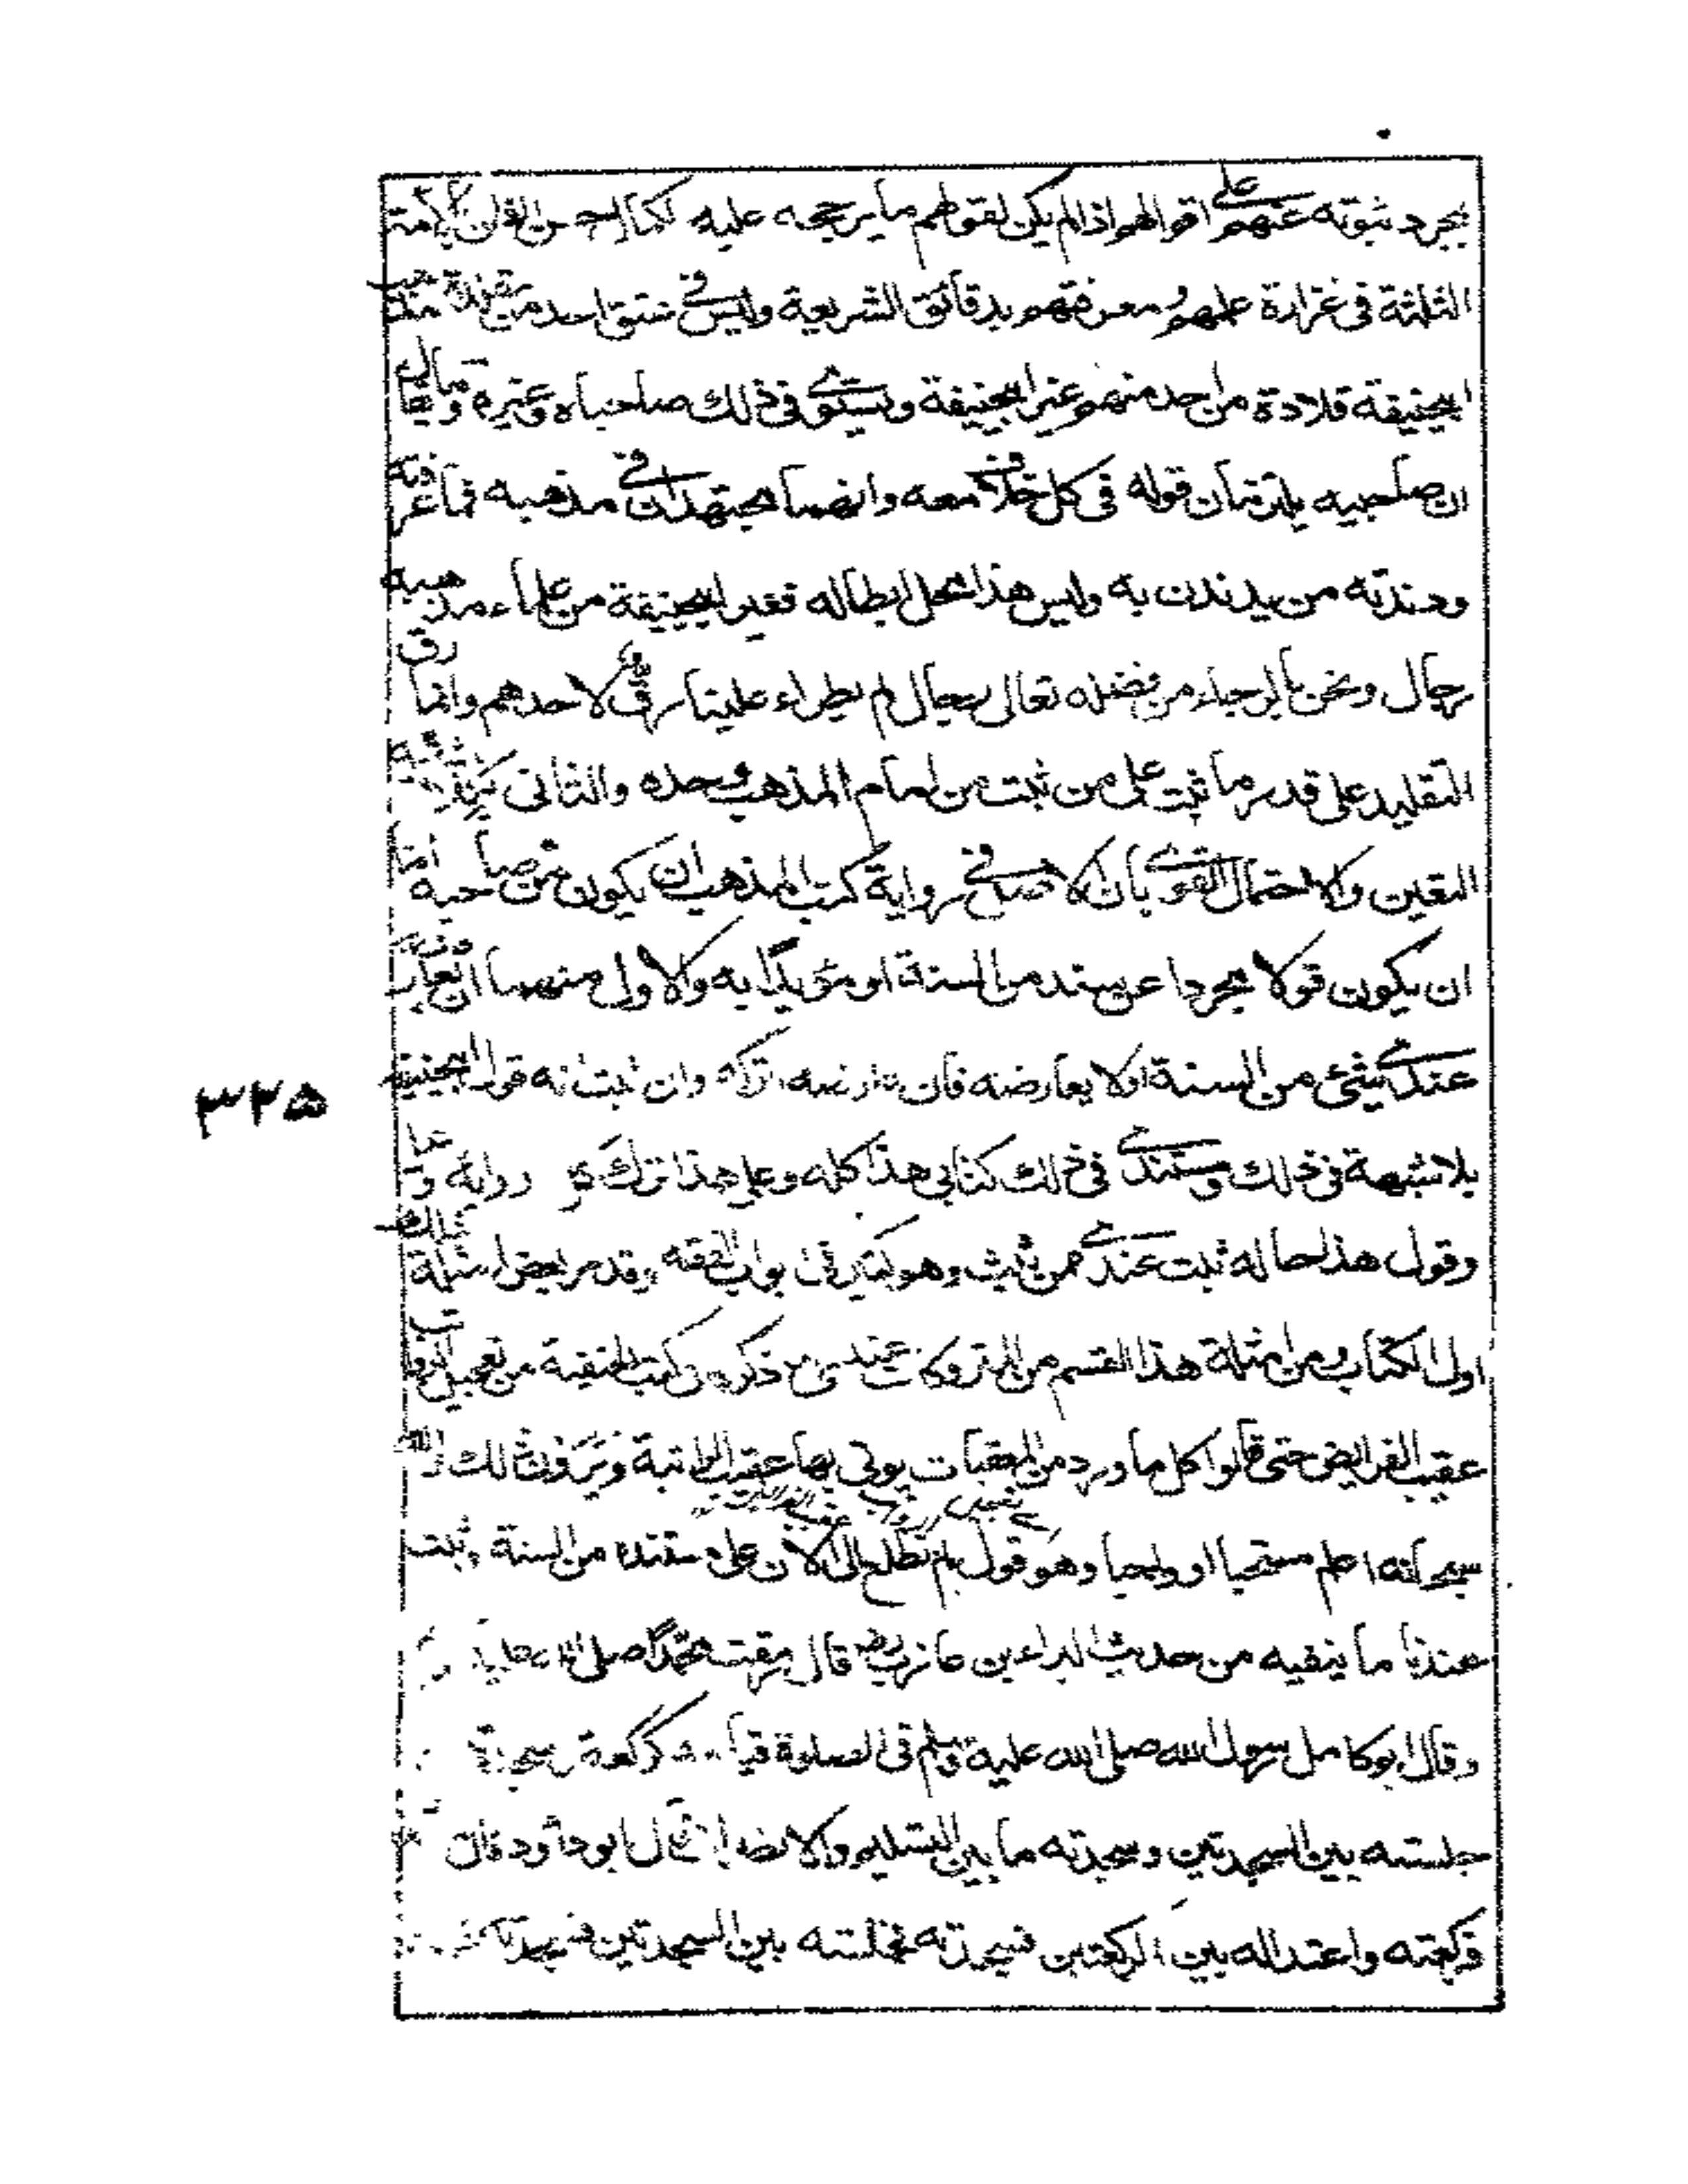 بمجرد ثبوته عنهم على اقوالهم اذا لم يكن لقولهم ما يرجحه عليه لكمال حسن الظن بالأئمة
الثلثة في غزارة علمهم ومعرفتهم بدقائق الشريعة وليس في عنق احد من مقلدة مذهب
ابيحنيفة قلادة من احد منهم غير ابيحنيفة ويستوي في ذلك صاحباه وغيره وما يقال
ان صاحبيه يلتزمان قوله في كل خلاف معه وانهما مجتهدان في مذهبه فما عرفته
ودندنه من يدندن به وليس هذا محل ابطاله فغير ابيحنيفة من علماء مذهبه
رجال ونحن بالرجاء من فضله تعالى رجال لم يطراء علينا رق لاحدهم وانما رق
التقليد على قدر ما ثبت على من ثبت من امام المذهب وحده والثاني
التعين والاحتمال القوي بان الاصل في رواية كتب المذهب ان يكون من صاحبه اما
ان يكون قولا مجردا عن سند من السنة او مؤيدا به والاول منهما ان يعارضه
عندي شيئ من السنة او لا يعارضه فان عارضه اتركه وان ثبت انه قول ابيحنيفة
بلا شبهة في ذلك ومستندي في ذلك كتابي هذا كله وعلى هذا ترك كل رواية
وقول هذا حاله ثبت عندي عمن ثبت وهو كثير في ابواب الفقه وقد مر بعض امثلة ذلك
اول الكتاب ومن امثلة هذا القسم من المتروكات عندي ما ذكره في كتب الحنفية من تعجيل الرواتب
عقيب الفرايض حتى قالوا كل ما ورد من المعقبات يوتى بها عقيب الراتبة ويرون ذلك والله
سبحانه اعلم مستحبا او واجبا وهو قول لم نطلع الى الآن على مستنده من السنة وثبت
عندنا ما ينفيه من حديث البراء بن عازب رضـ قال رمقت محمدا صلى الله عليه
وقال ابو كامل رسول الله صلى الله عليه وسلم في الصلوة كركعته وسجدته
جلسته بين السجدتين وسجدته ما بين التسليم والانصراف قال ابو داود قال
فركعته واعتداله بين الركعتين فسجدته فجلسته بين السجدتين فسجدته
٣٢٥